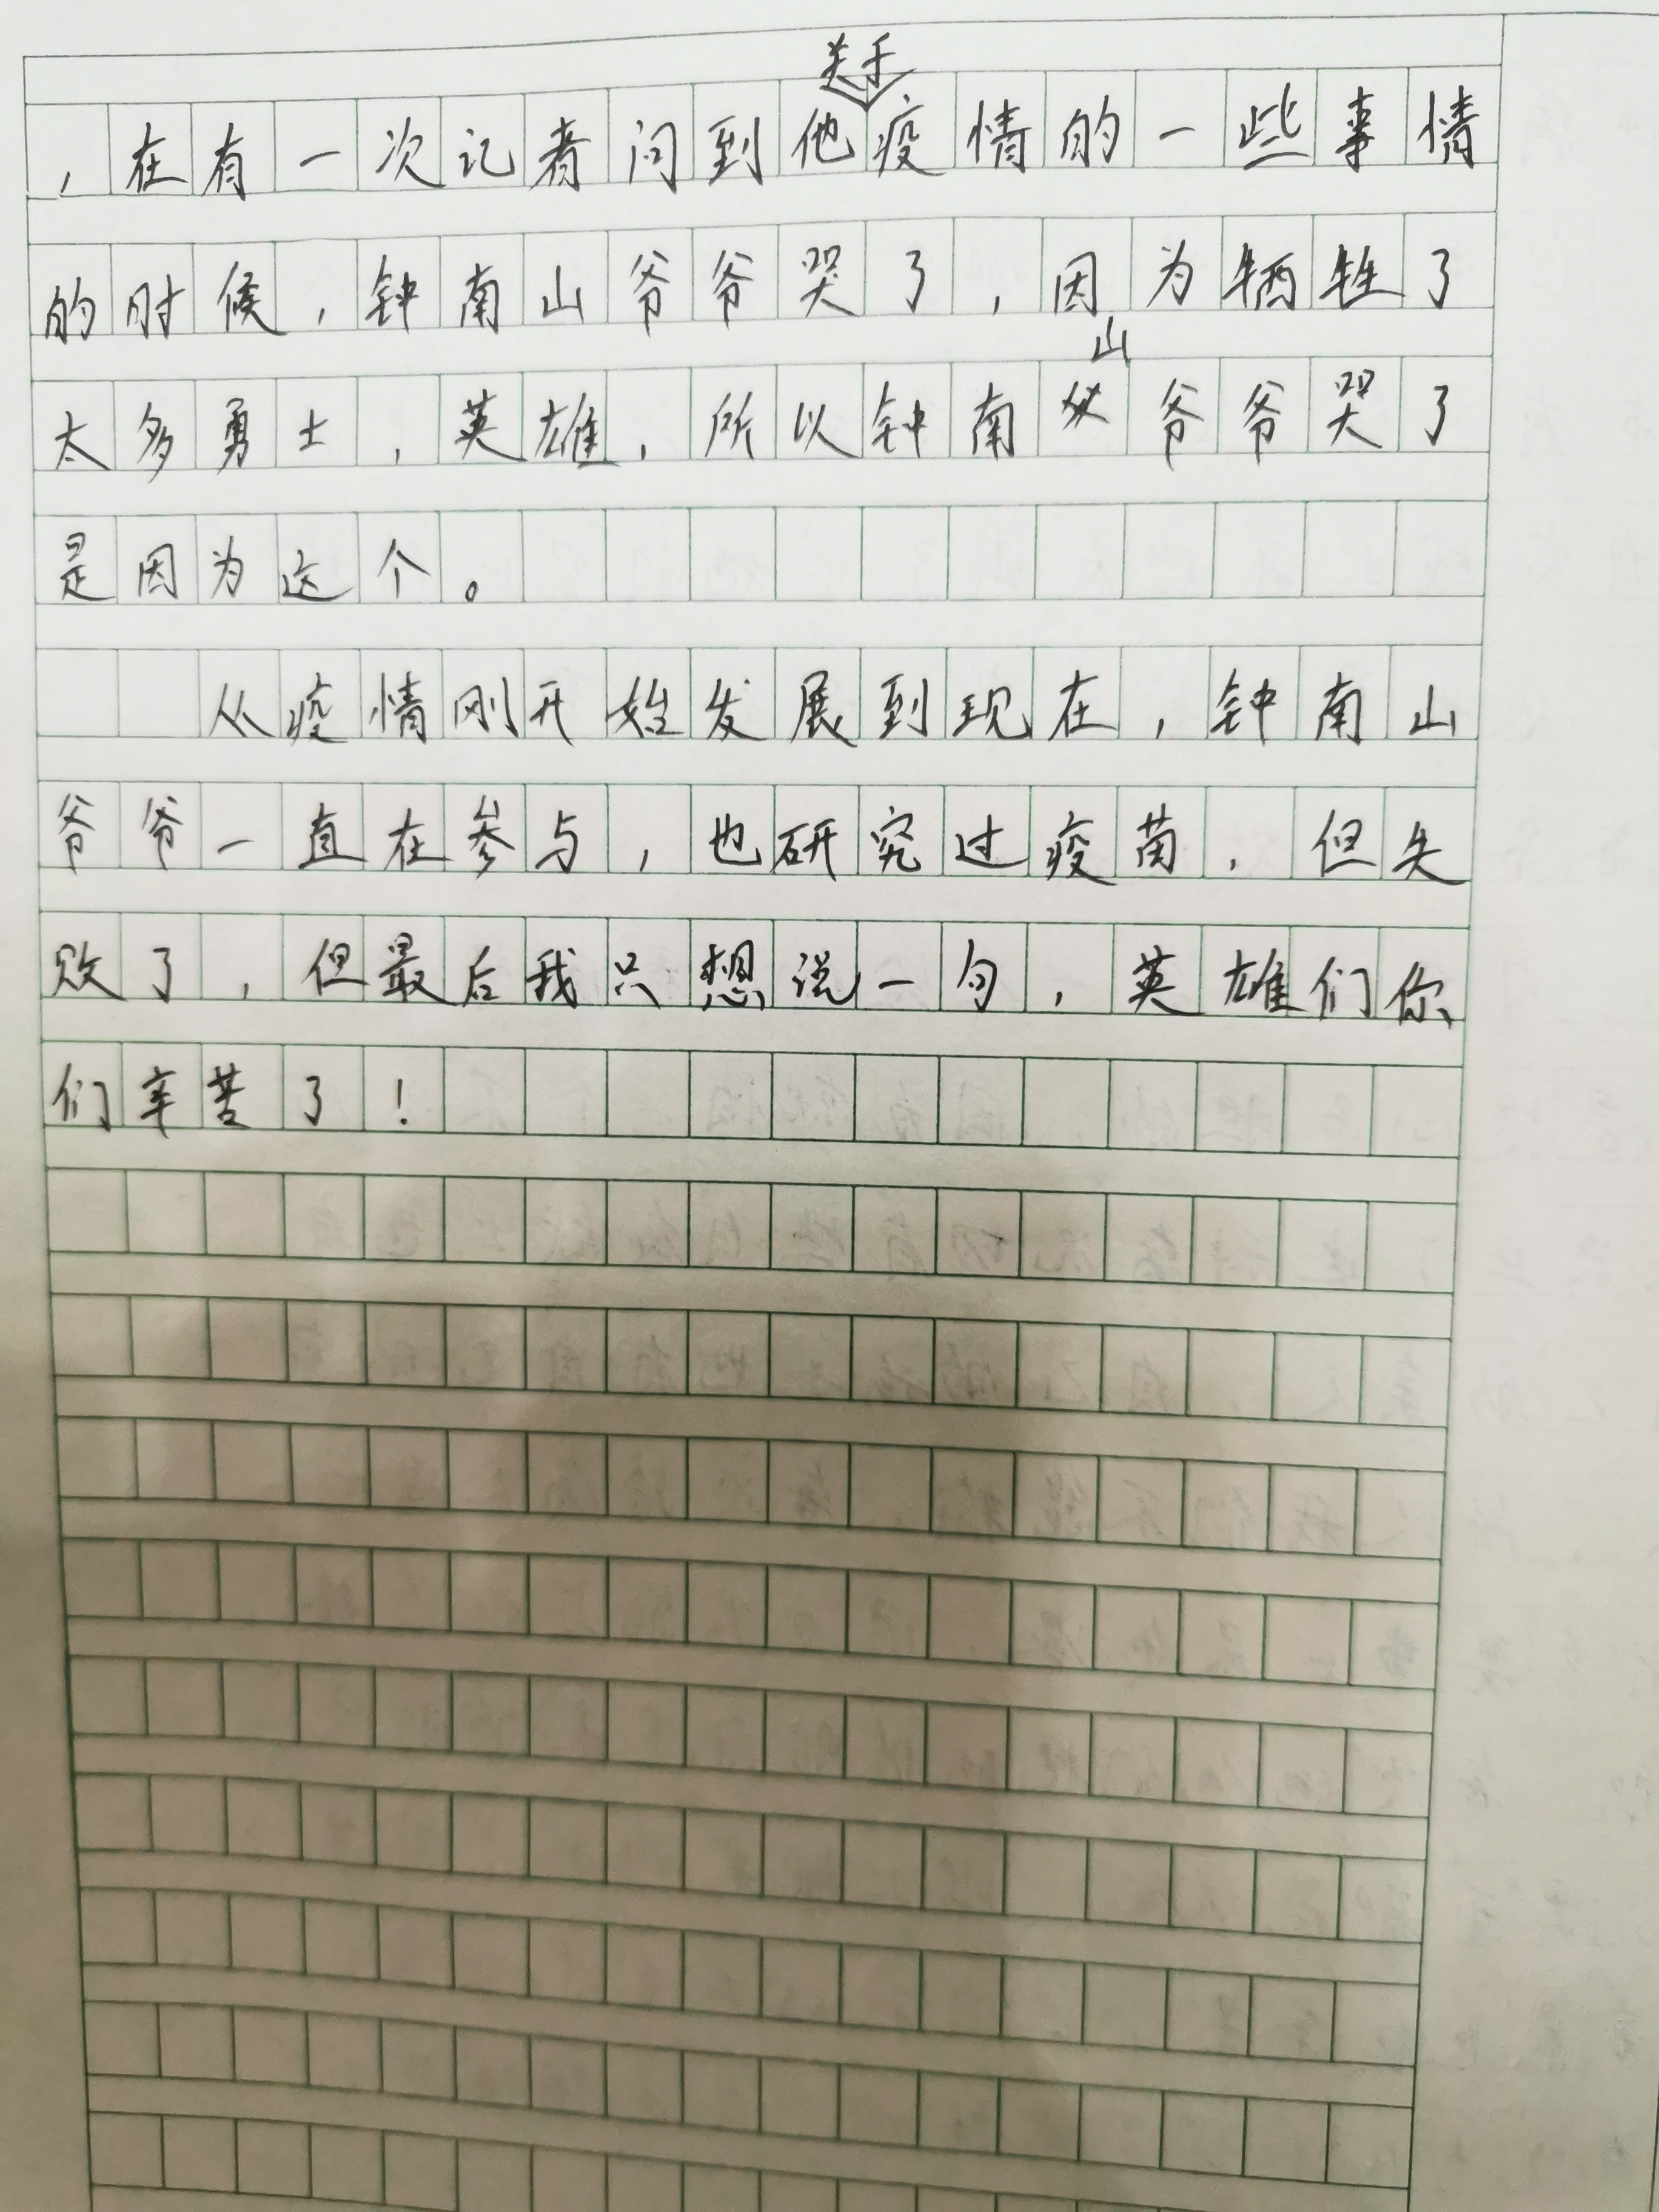 ，在有一次记者问到他关于疫情的一些事情
的时候，钟南山爷爷哭了，因为牺牲了
太多勇士，英雄，所以钟南山爷爷哭了
是因为这个。
从疫情刚开始发展到现在，钟南山
爷爷一直在参与，也研究过疫苗，但失
败了，但最后我只想说一句，英雄们你
们辛苦了！